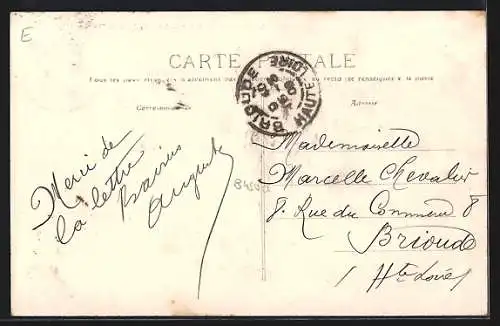 E
CARTE POSTALE
Tous les pays étrangers n'acceptent pas la correspondance au recto (se renseigner à la poste)
Correspondance
Adresse
BRIOUDE
HAUTE LOIRE
Merci de
la lettre
Baisers
Auguste
Mademoiselle
Marcelle Chevalier
8. Rue du Commerce 8
Brioude
Hte Loire